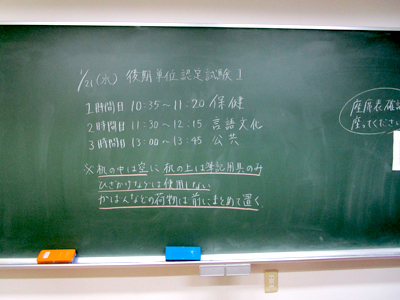 1/21(水) 後期単位認定試験 1
1時間目 10:35〜11:20 保健
2時間目 11:30〜12:15 言語文化
3時間目 13:00〜13:45 公共
※机の中は空に 机の上は筆記用具のみ
ひざかけなどは使用しない
かばんなどの荷物は前にまとめて置く
座席表確認
座ってください